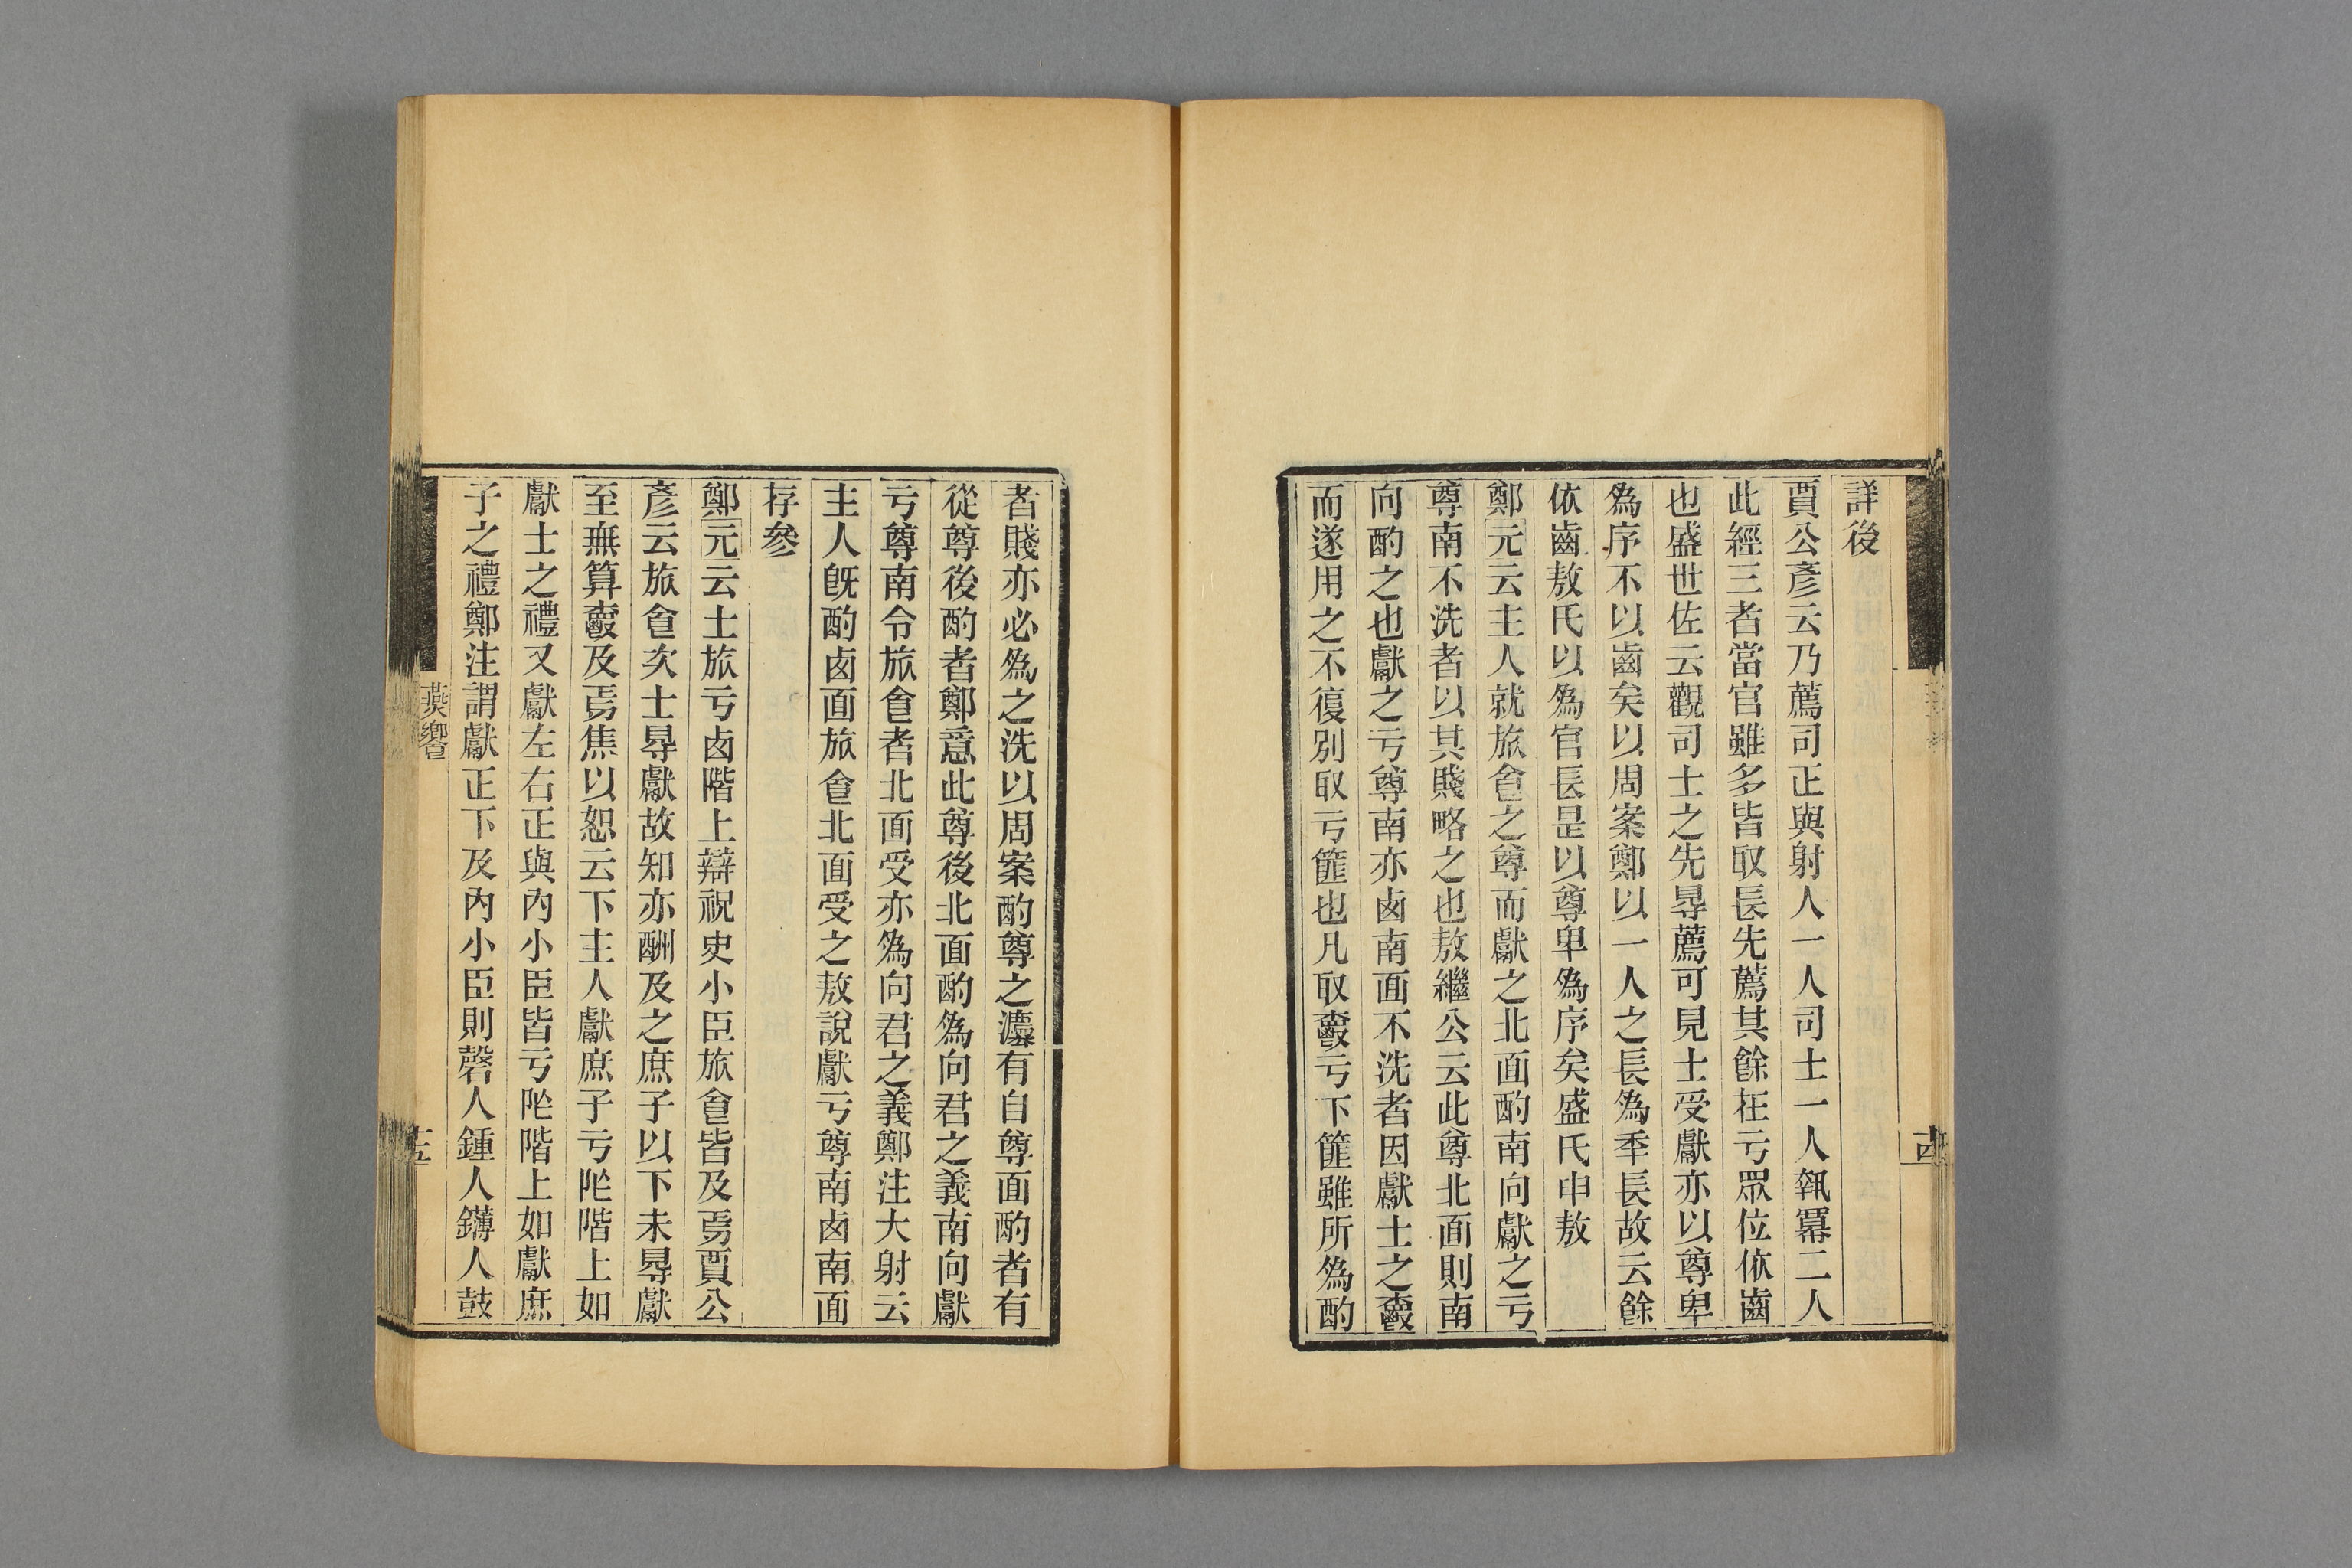 詳後
賈公彥云乃薦司正與射人一人司士一人執冪二人
此經三者當官雖多皆取長先薦其餘在亏眾位依齒
也盛世佐云觀司士之先㝵薦可見士受獻亦以尊卑
為序不以齒矣以周案鄭以一人之長為秊長故云餘
依齒敖氏以為官長是以尊卑為序矣盛氏申敖
鄭元云主人就旅食之尊而獻之北面酌南向獻之亏
尊南不洗者以其賤略之也敖繼公云此尊北面則南
向酌之也獻之亏尊南亦卤南面不洗者因獻士之爵
而遂用之不復別取亏篚也凡取爵亏下篚雖所為酌
者賤亦必為之洗以周案酌尊之灋有自尊面酌者有
從尊後酌者鄭意此尊後北面酌為向君之義南向獻
亏尊南令旅食者北面受亦為向君之義鄭注大射云
主人旣酌卤面旅食北面受之敖說獻亏尊南卤南面
存參
鄭元云士旅亏卤階上辯祝史小臣旅食皆及焉賈公
彥云旅食次士㝵獻故知亦酬及之庶子以下未㝵獻
至無算爵及焉焦以恕云下主人獻庶子亏阼階上如
獻士之禮又獻左右正與內小臣皆亏阼階上如獻庶
子之禮鄭注謂獻正下及內小臣則磬人鍾人鑮人鼓
燕饗
十五